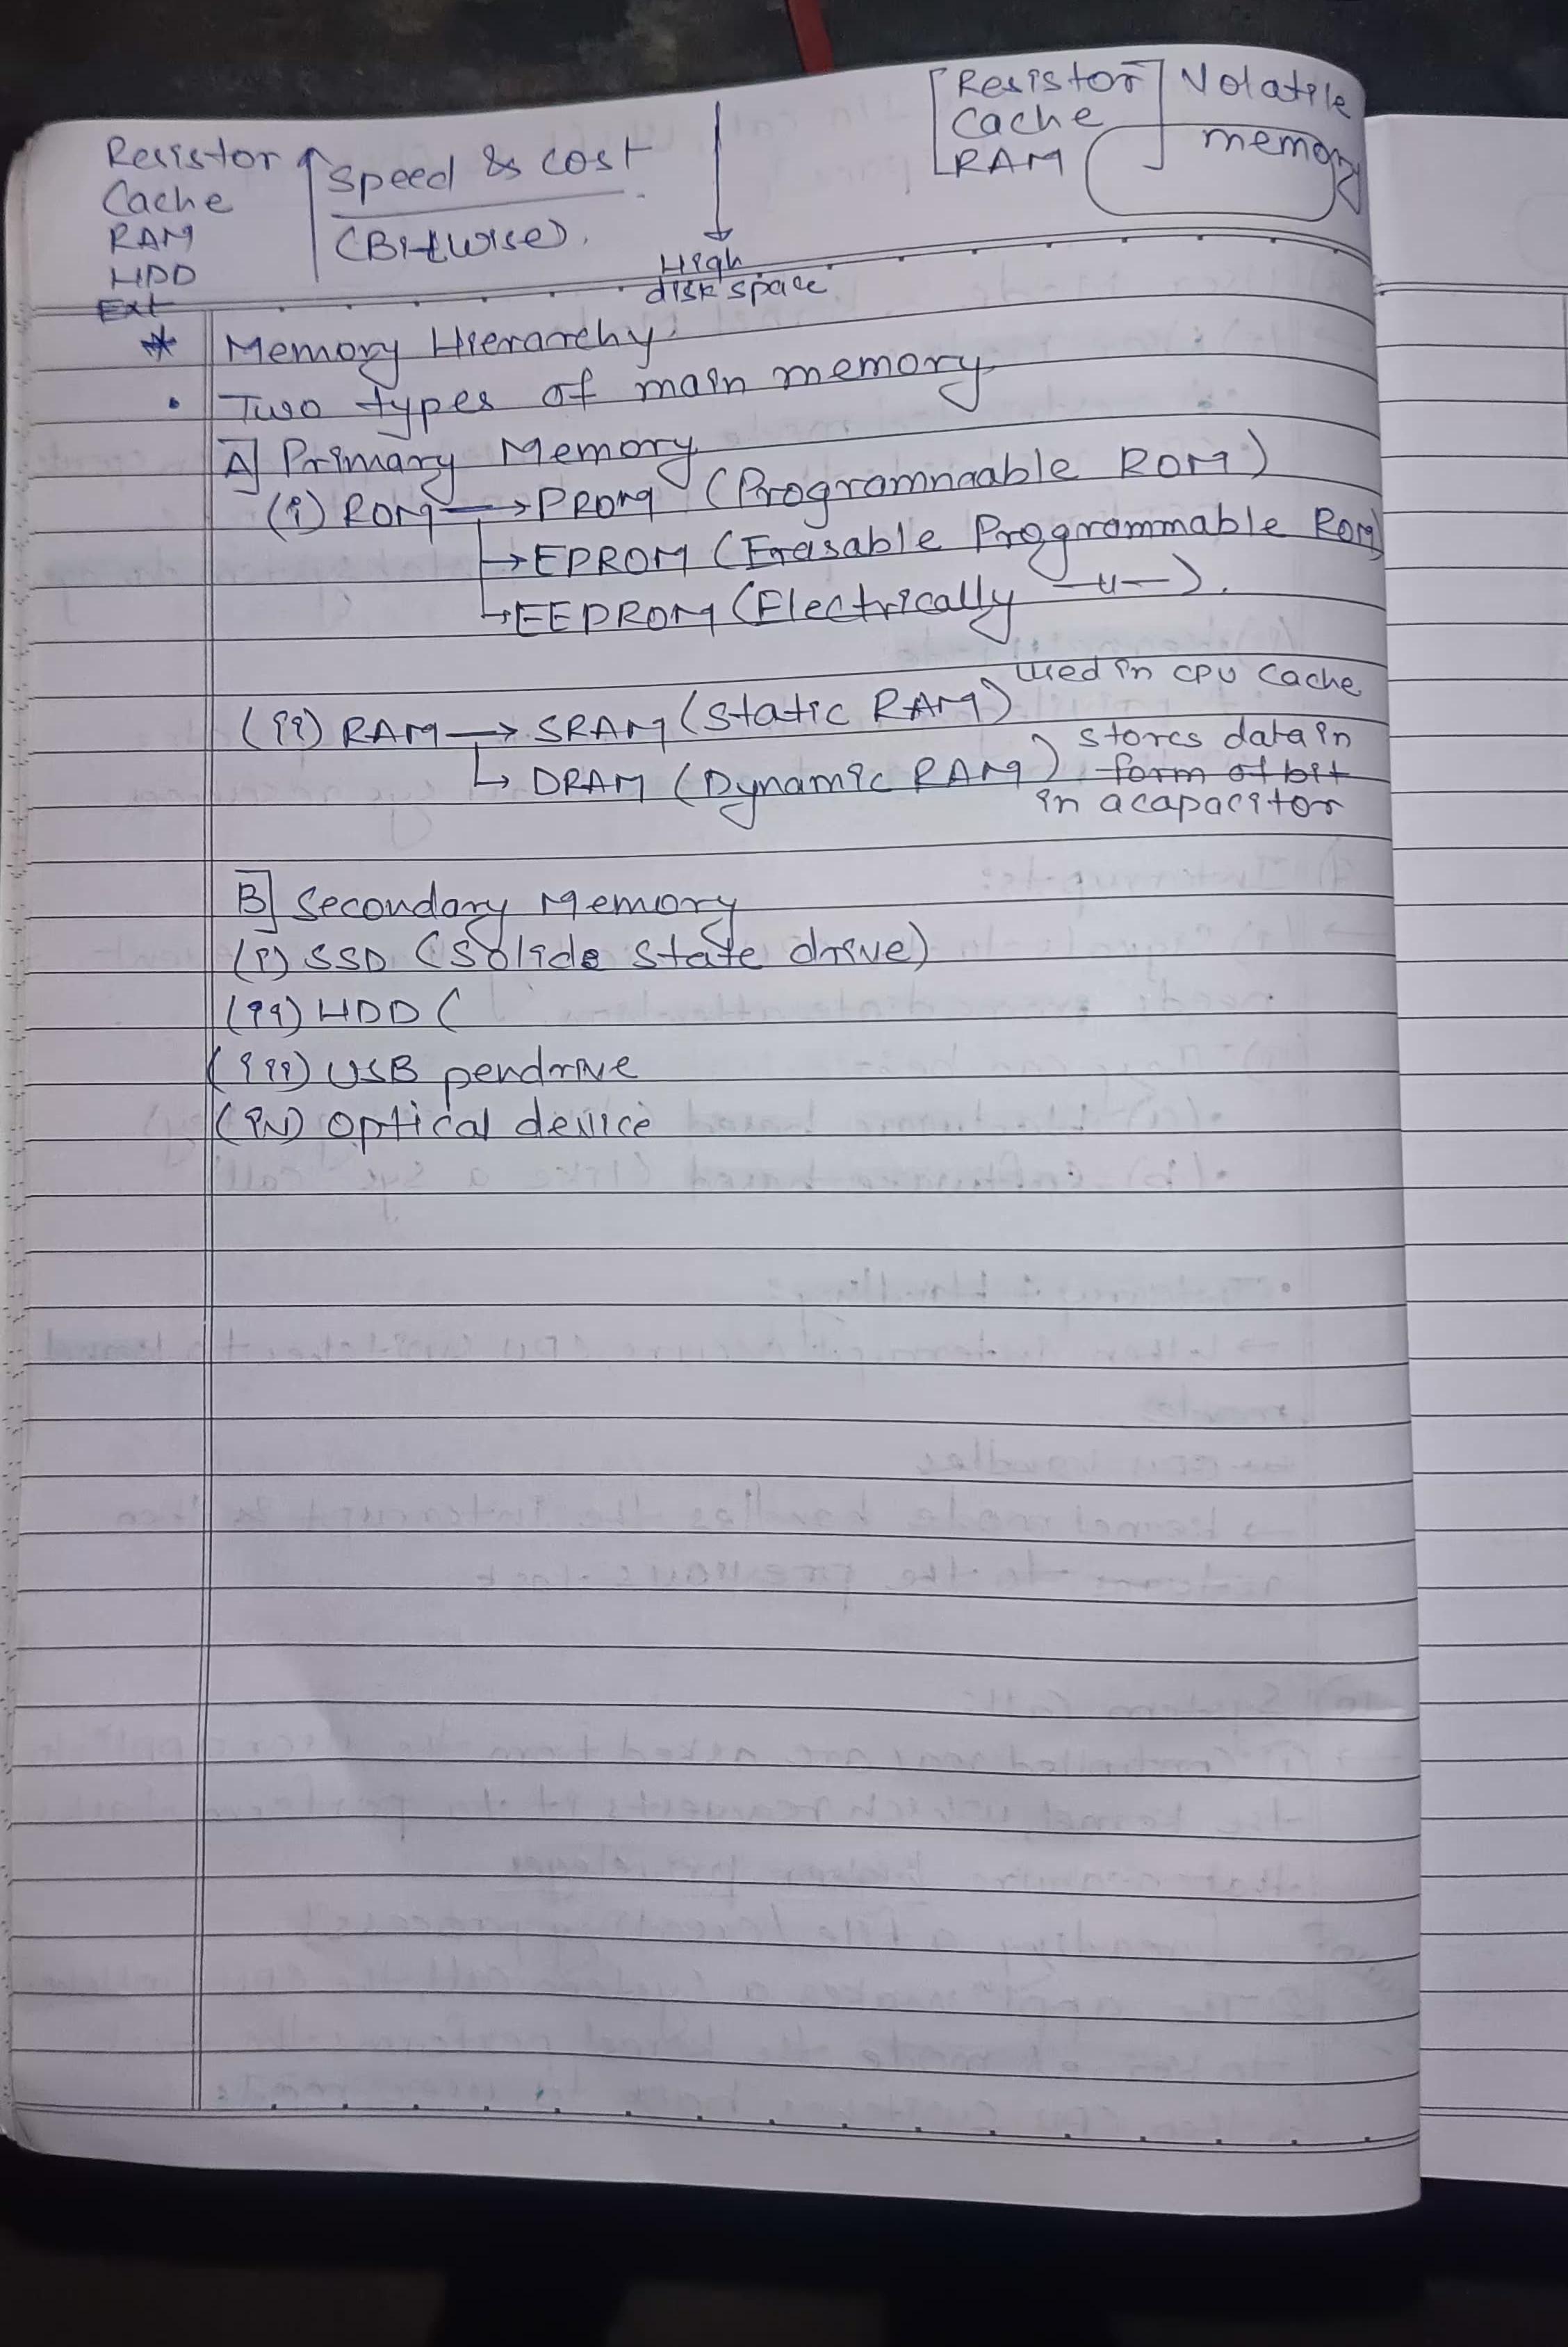 Resistor
Cache
RAM
HDD
Ext
Speed & cost
(Bitwise).
High
disk space
Resistor
Cache
RAM
Volatile
memory
* Memory Hierarchy:
• Two types of main memory
A] Primary Memory
(i) ROM → PROM (Programmable ROM)
→ EPROM (Erasable Programmable ROM)
→ EEPROM (Electrically —〃—).
(ii) RAM → SRAM (Static RAM) used in CPU cache
→ DRAM (Dynamic RAM) stores data in
form of bit
in a capacitor
B] Secondary Memory
(i) SSD (Solide State drive)
(ii) HDD (
(iii) USB pendrive
(iv) Optical device